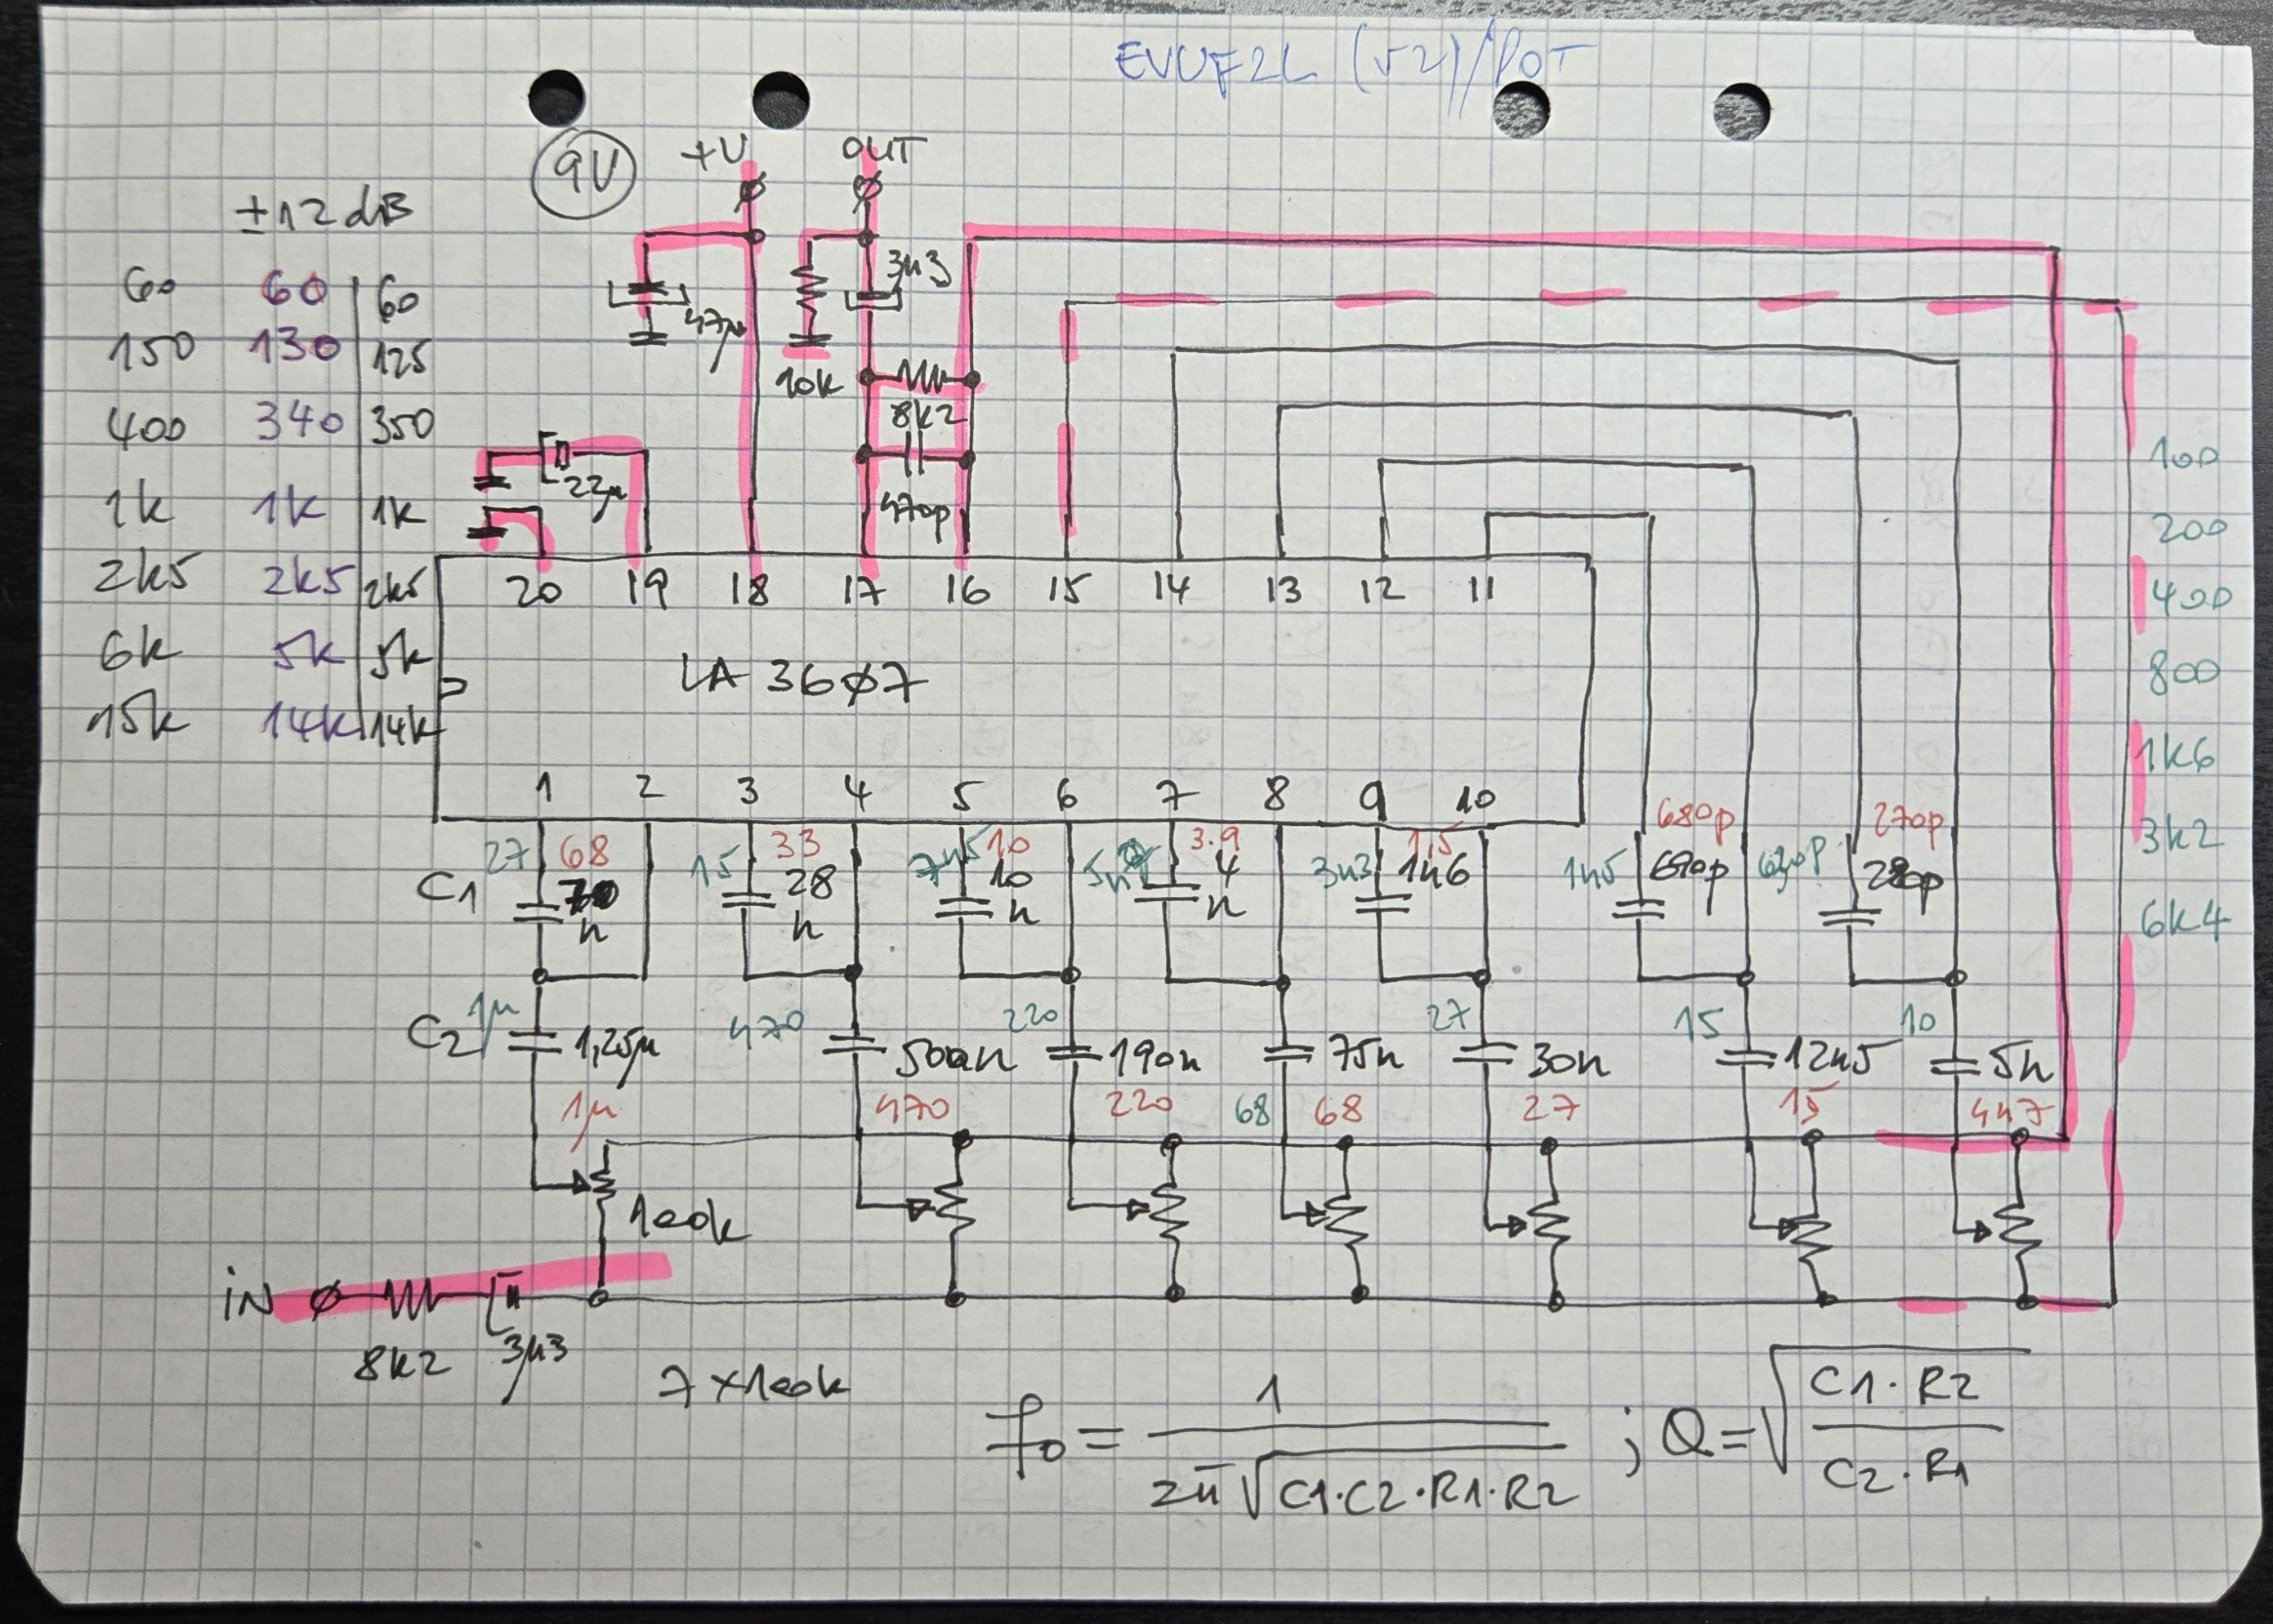 EVUF2L (52)/POT
9V
+V
OUT
±12dB
60 60 60
150 130 125
400 340 350
1k 1k 1k
2k5 2k5 2k5
6k 5k 5k
15k 14k 14k
47µ
3µ3
10k
8k2
470p
22µ
20 19 18 17 16 15 14 13 12 11
LA 36Ø7
1 2 3 4 5 6 7 8 9 10
100
200
400
800
1k6
3k2
6k4
27 68 15 33 7n5 10 3.9 1,5 680p 270p
C1 n 28 n 10 n 4 n 3n3 1n6 1n5 690p 280p
C2 1µ 1,25µ 470 500n 220 190n 75n 27 30n 15 12n5 10 5n
1µ 470 220 68 68 27 15 4n7
100k
iN
8k2 3µ3
7x100k
f0 = 1 / 2π√C1·C2·R1·R2 ; Q = √C1·R2 / C2·R1